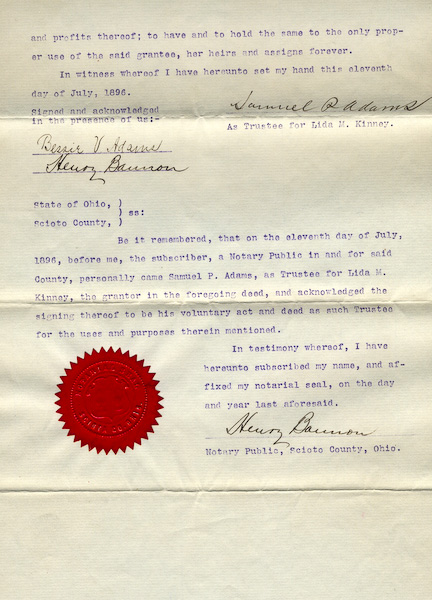 and profits thereof; to have and to hold the same to the only prop-
er use of the said grantee, her heirs and assigns forever.
In witness whereof I have hereunto set my hand this eleventh
day of July, 1896.
Signed and acknowledged
in the presence of us:-
Samuel P. Adams
As Trustee for Lida M. Kinney.
Bessie V Adams
Henry Bannon
State of Ohio, )
) ss:
Scioto County, )
Be it remembered, that on the eleventh day of July,
1896, before me, the subscriber, a Notary Public in and for said
County, personally came Samuel P. Adams, as Trustee for Lida M.
Kinney, the grantor in the foregoing deed, and acknowledged the
signing thereof to be his voluntary act and deed as such Trustee
for the uses and purposes therein mentioned.
In testimony whereof, I have
hereunto subscribed my name, and af-
fixed my notarial seal, on the day
and year last aforesaid.
Henry Bannon
Notary Public, Scioto County, Ohio.